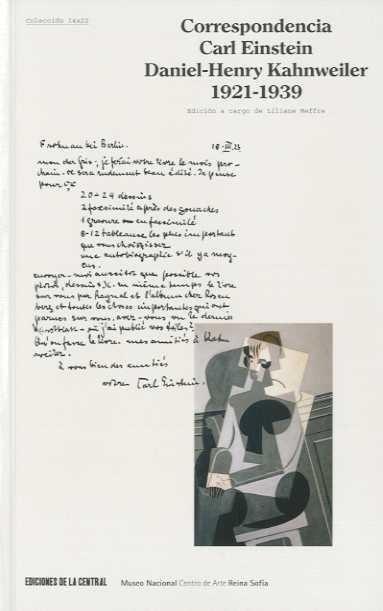 Colección 14x22
Correspondencia
Carl Einstein
Daniel-Henry Kahnweiler
1921-1939
Edición a cargo de Liliane Meffre
Frohnau bei Berlin. 18 III 23
mon cher Gris, je ferai votre livre le mois pro-
chain. ce sera rudement beau édité. Je pense
pour
20-24 dessins
2 facsimilé après des gouaches
1 gravure en facsimilé
8-12 tableaux les plus important
que vous choisissez
une autobiographie s'il y a moy-
en.
envoyer-moi aussitôt que possible vos
photos, dessins etc. en même temps le livre
sur vous par Raynal et l'album chez Rosen
berg et toutes les choses importantes qui ont
parues sur vous. avez-vous vu le dernier
où j'ai publié vos toiles?
On va faire le livre. mes amitiés à
à vous bien des amitiés
votre Carl Einstein.
EDICIONES DE LA CENTRAL
Museo Nacional Centro de Arte Reina Sofía